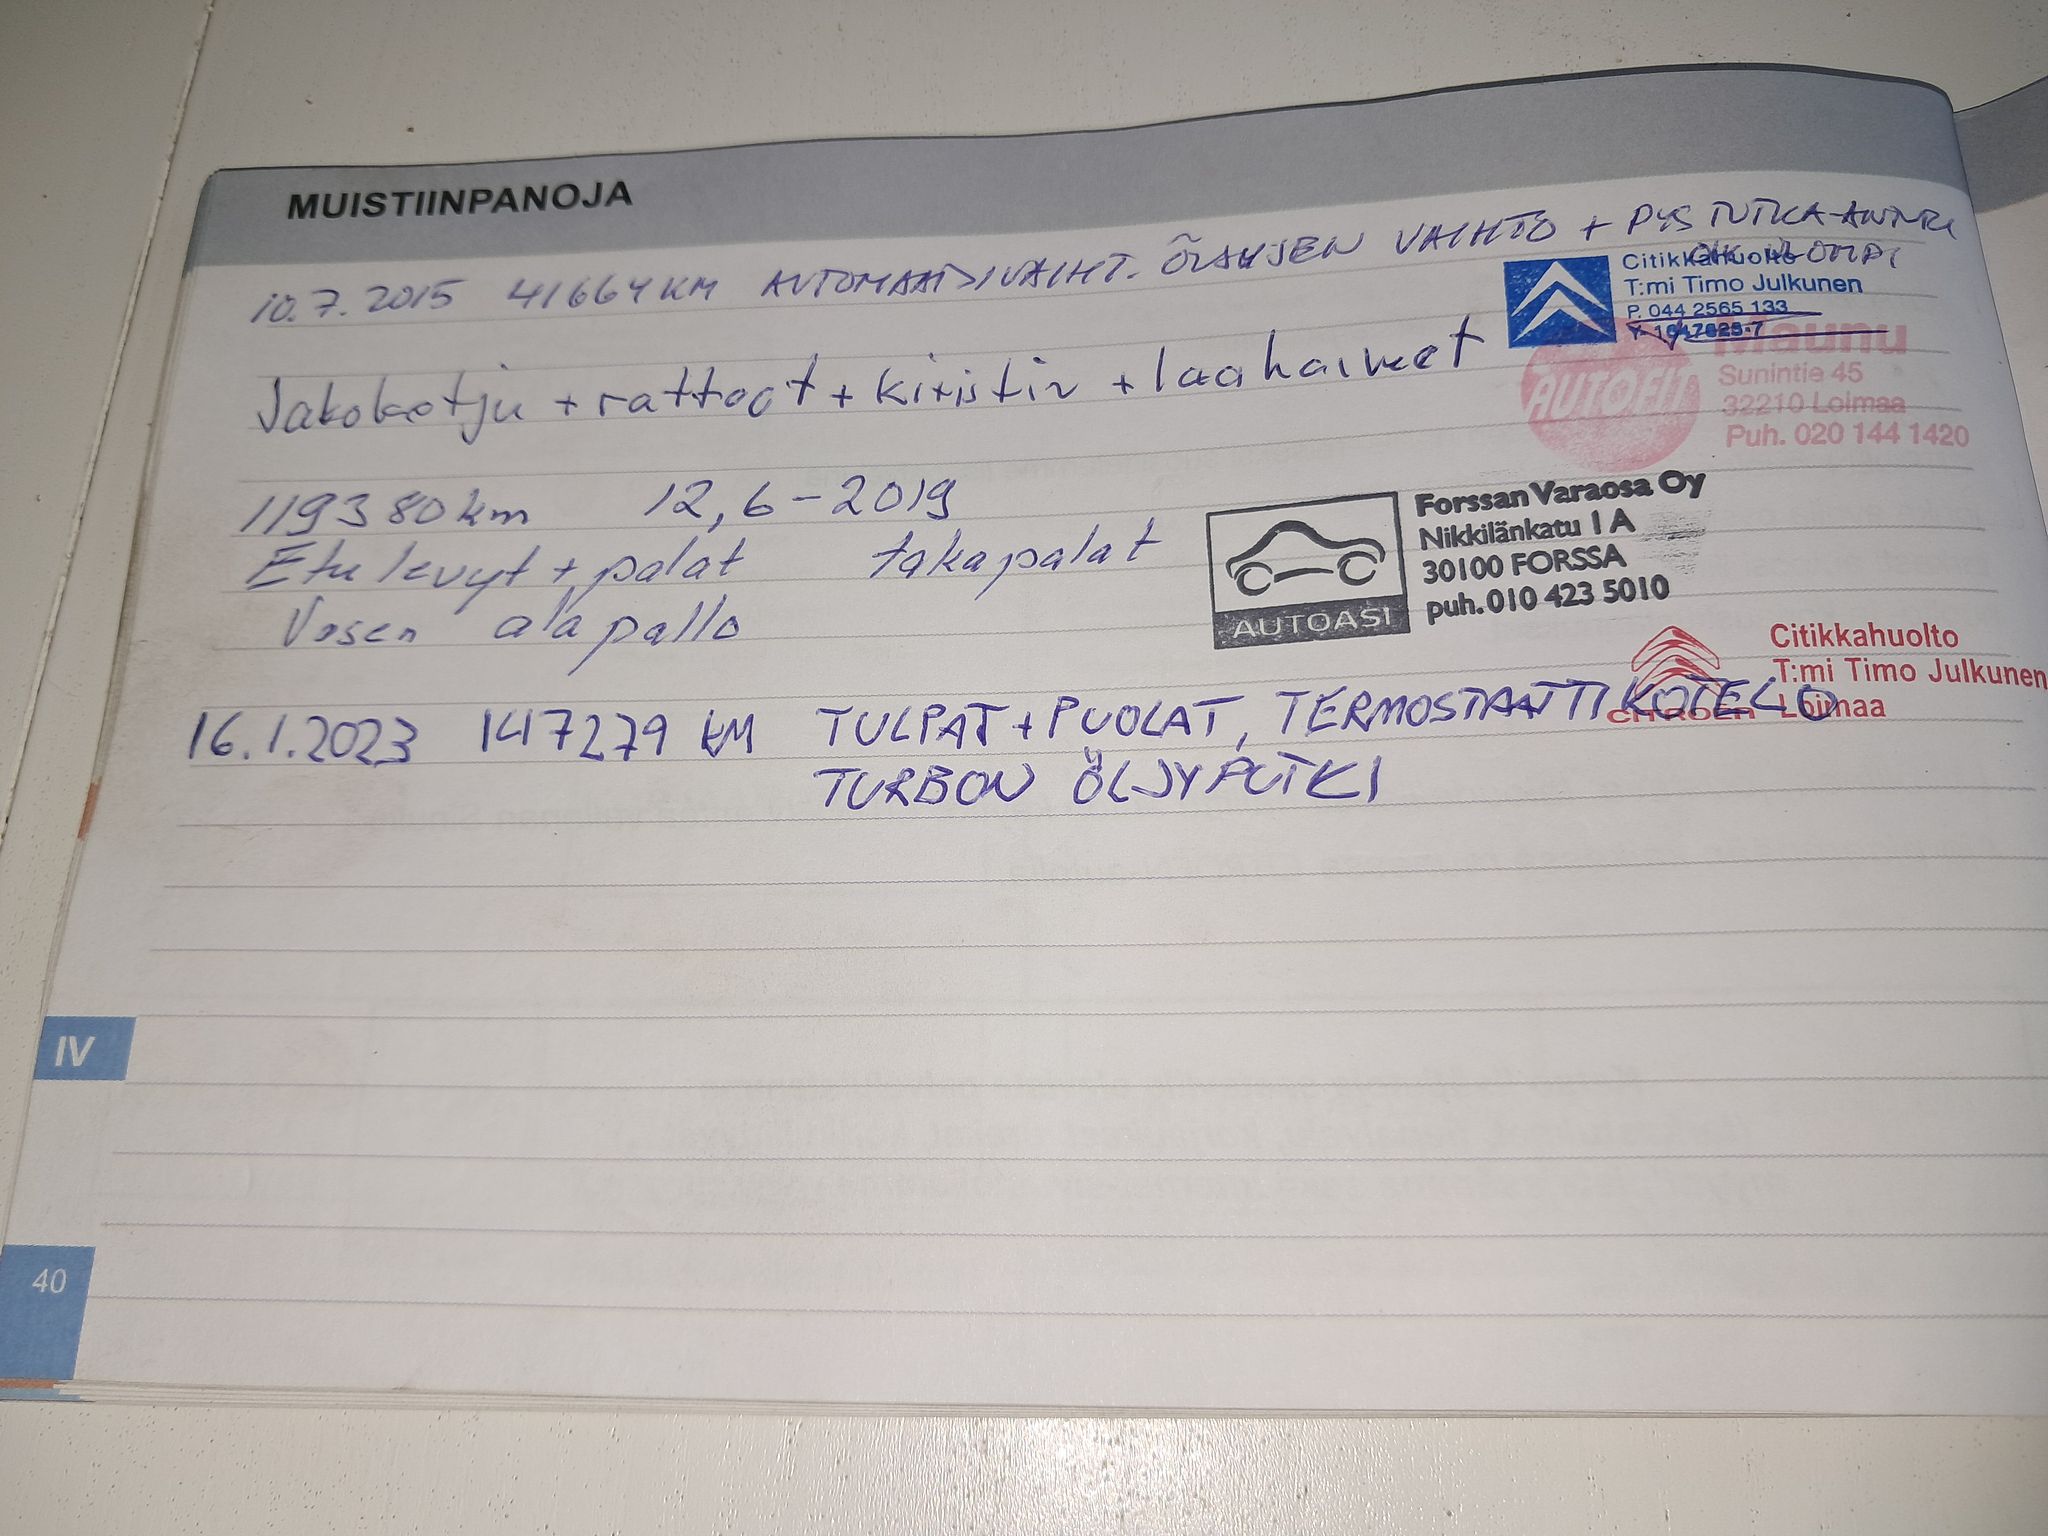 MUISTIINPANOJA
10.7.2015 41664 KM AUTOMAATTIVAIHT. ÖLJYJEN VAIHTO + PYS TUTKA-ANTURI
Citikkahuolto
T:mi Timo Julkunen
P. 044 2565 133
Jakoketju + rattaat + kiristin + laahaimet
Maunu
AUTOFIT
Sunintie 45
32210 Loimaa
Puh. 020 144 1420
119380 km 12,6-2019
Etu levyt + palat takapalat
Vasen alapallo
AUTOASI
Forssan Varaosa Oy
Nikkilänkatu 1 A
30100 FORSSA
puh. 010 423 5010
Citikkahuolto
T:mi Timo Julkunen
Loimaa
CITROËN
16.1.2023 147279 KM TULPAT + PUOLAT, TERMOSTAATTIKOTELO
TURBON ÖLJYPUTKI
IV
40